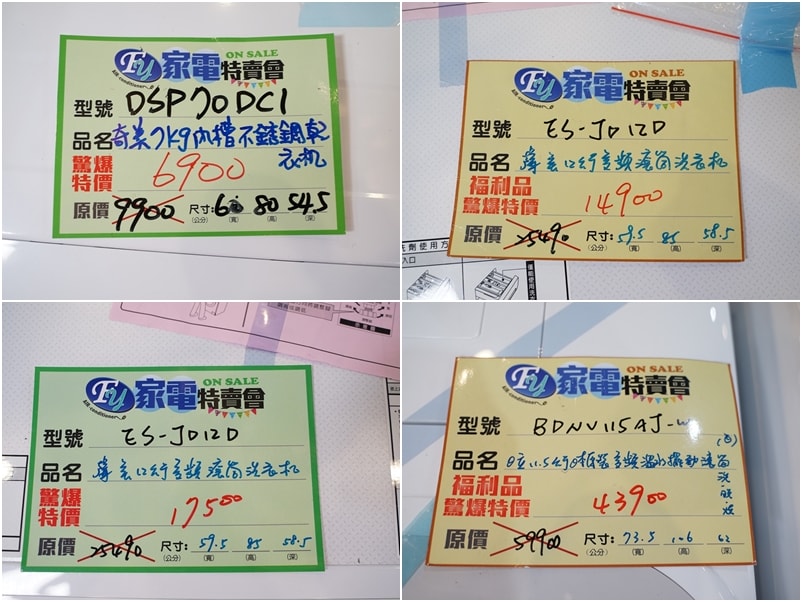 FU 家電特賣會 ON SALE
Air conditioner
型號 DSP70DC1
品名 奇美7kg內槽不銹鋼乾衣机
驚爆特價 6900
原價 9900 尺寸:60 80 54.5
(公分) (寬) (高) (深)
FU 家電特賣會 ON SALE
Air conditioner
型號 ES-JD12D
品名 聲宝12公斤变頻滾筒洗衣机
福利品
驚爆特價 14900
原價 25490 尺寸:59.5 85 58.5
(公分) (寬) (高) (深)
入口
FU 家電特賣會 ON SALE
Air conditioner
型號 ES-JD12D
品名 聲宝12公斤变頻滾筒洗衣机
驚爆特價 17500
原價 25490 尺寸:59.5 85 58.5
(公分) (寬) (高) (深)
FU 家電特賣會 ON SALE
Air conditioner
型號 BDNV115AJ-W
品名 日立11.5公斤日本製变頻溫水擺動滾筒洗.脫.烘
(白)
福利品
驚爆特價 43900
原價 59900 尺寸:73.5 106 62
(公分) (寬) (高) (深)